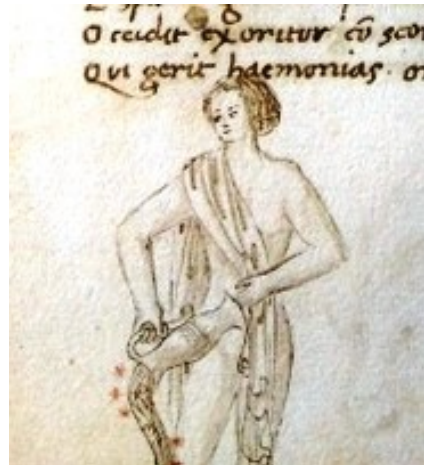 Occidit exoritur cū sco
Qui gerit haemonias. o